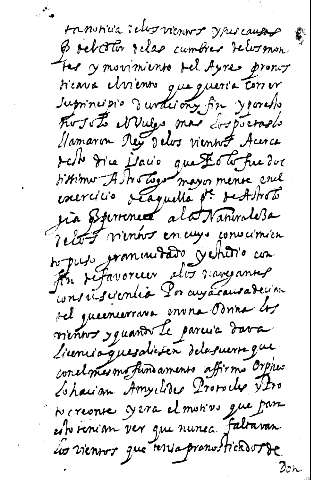 ta noticia de los vientos y sus causas
q̃ del color de las cumbres de los mon-
tes y movimiento del Ayre pronos
ticava el viento que queria correr
su principio duracion y fin y por esto
no solo el Vulgo mas los poetas lo
llamaron Rey de los vientos. Acerca
desto dice Isacio que Eolo fue doc
tissimo Astrologo mayormente en el
exercicio de aquella p.te de Astrolo
gia q̃ pertenece a la Naturaleza
de los vientos en cuyo conocimien
to puso gran cuidado y estudio con
fin de favorecer a los navegantes
con su sciencia Por cuya causa decian
del que encerrava en una Odrina los
vientos y quando le parecia dava
licencia que saliesen de la suerte que
con el mesmo fundamento affirmo Orpheo
lo hacian Amyclides Protocles y Pro
tocreonte y era el motivo que para
esto tenian ver que nunca faltavan
los vientos que tenia pronosticados de
Don